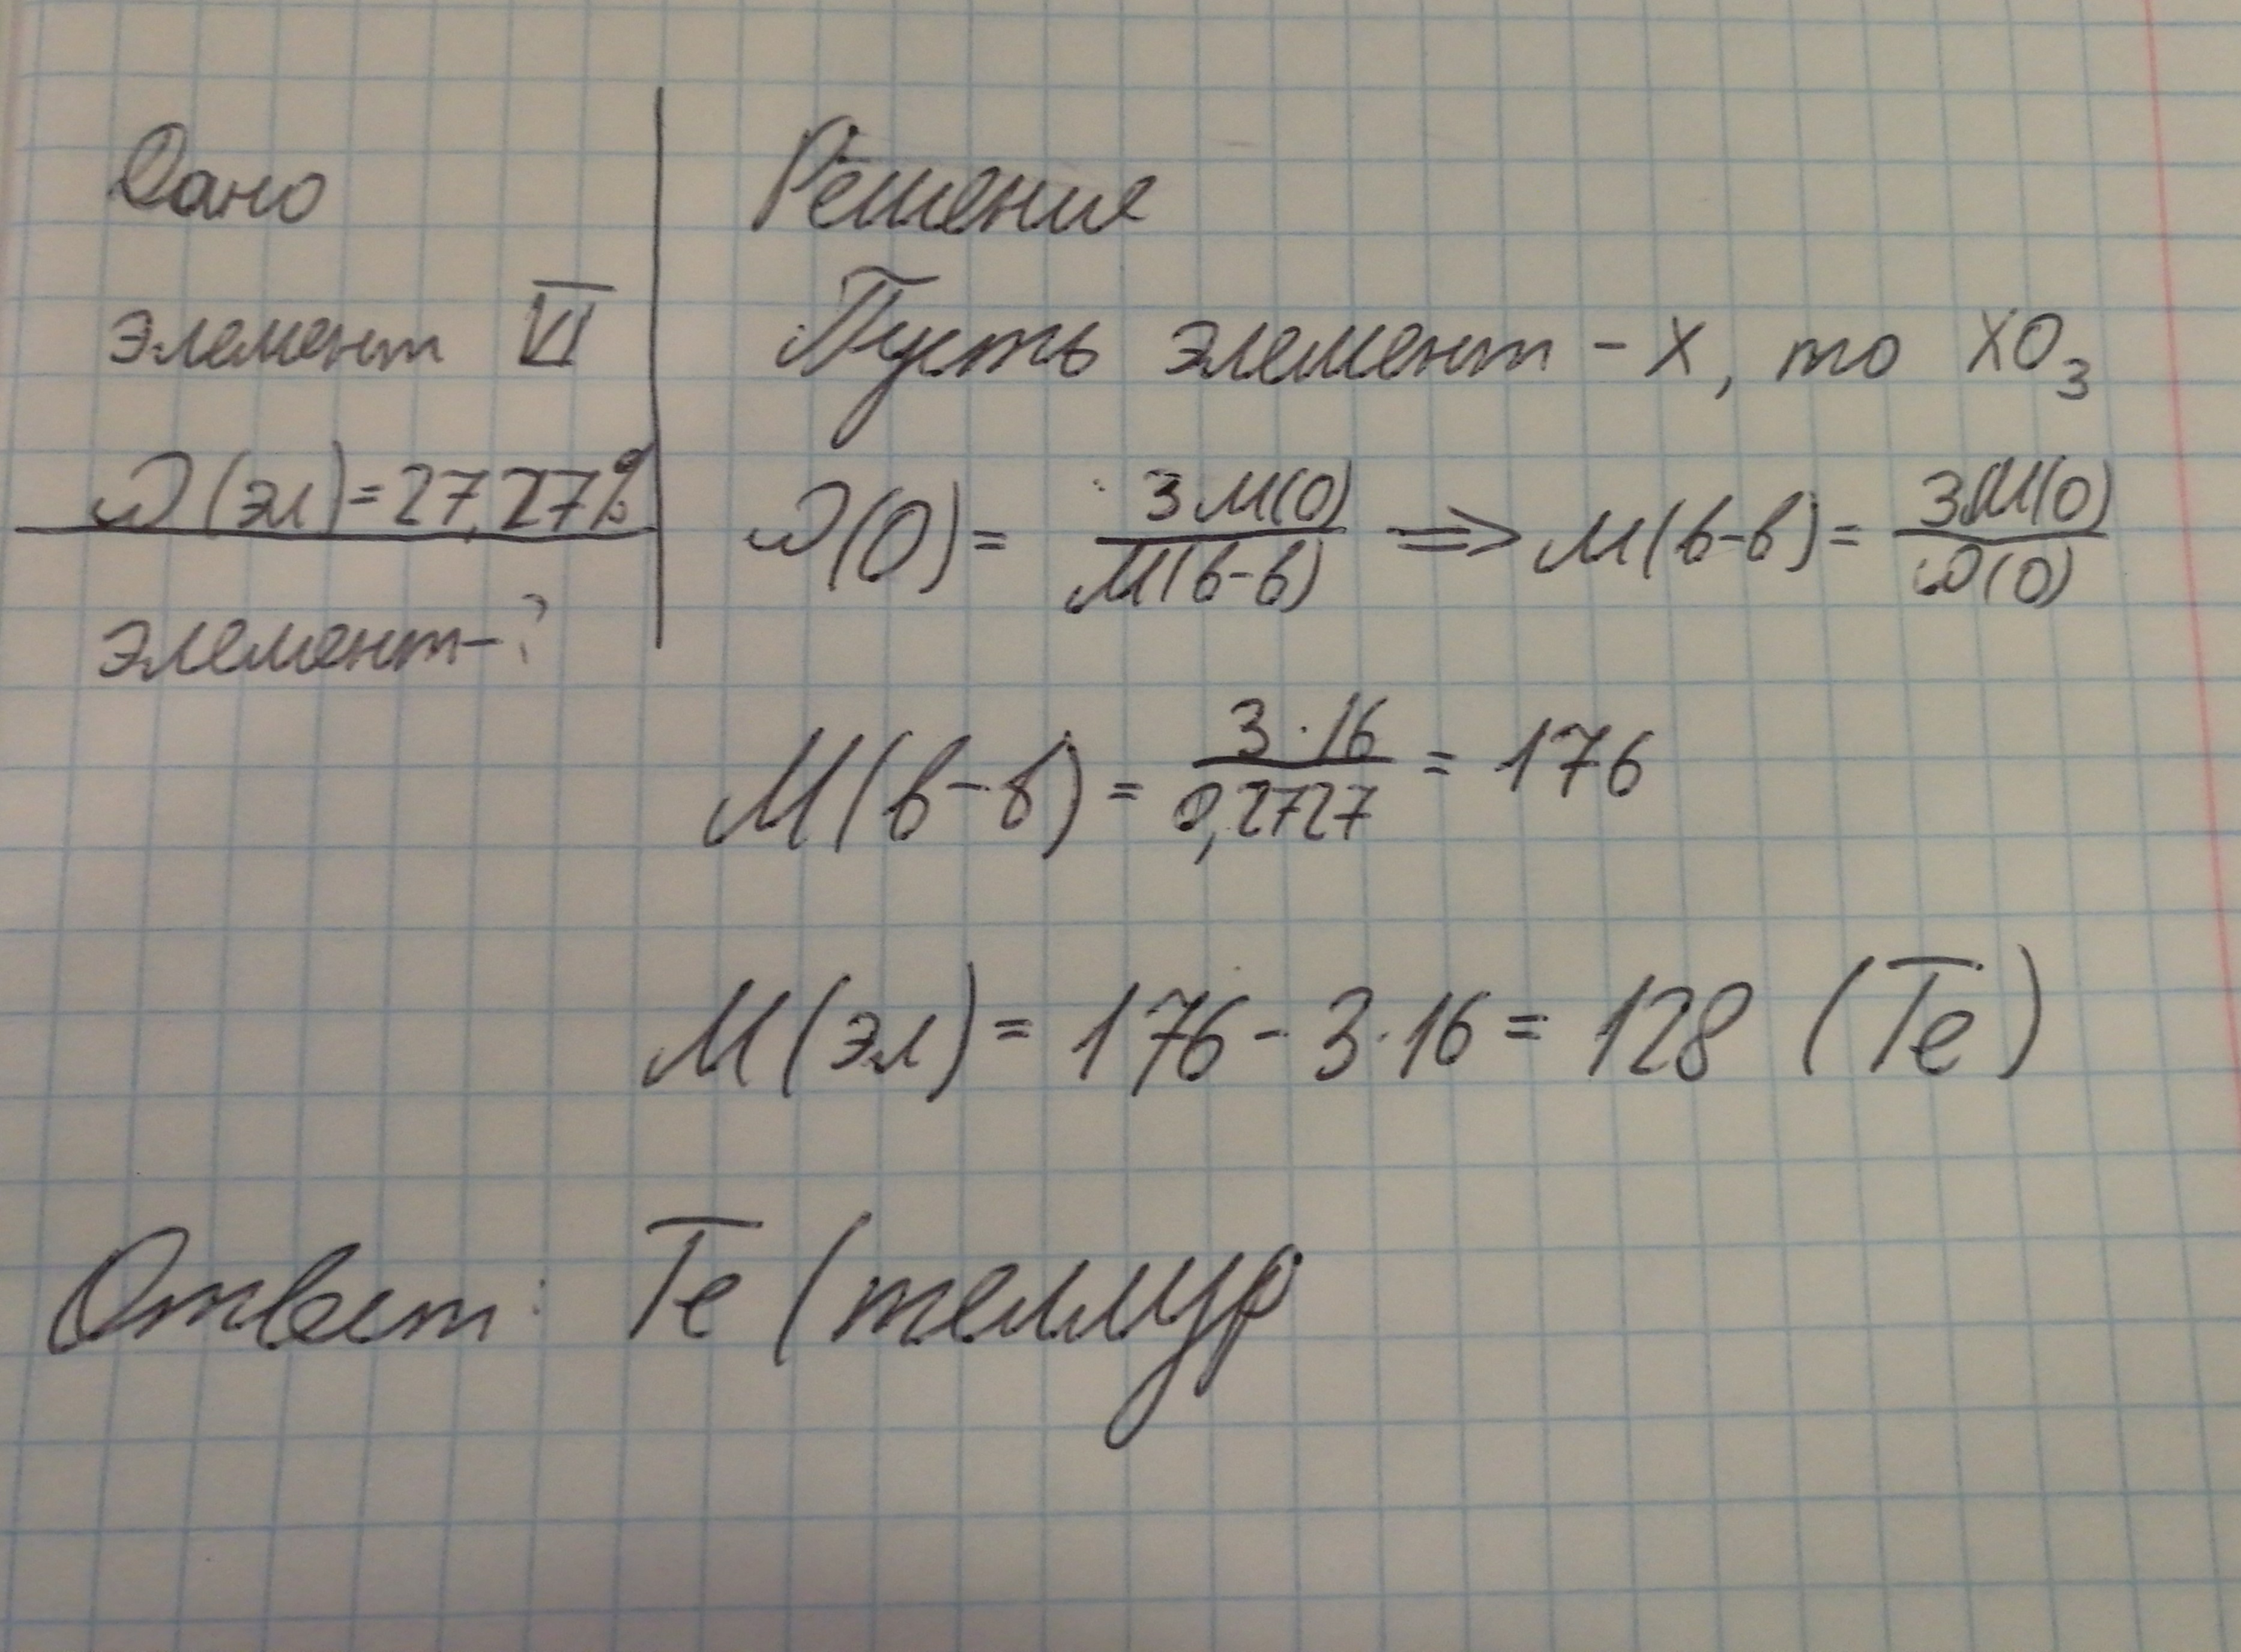 Дано
элемент VI
ω(эл)=27,27%
элемент-?
Решение
Пусть элемент - X, то XO₃
ω(O) = 3M(O)/M(в-в) ⇒ M(в-в) = 3M(O)/ω(O)
M(в-в) = 3·16/0,2727 = 176
M(эл) = 176 - 3·16 = 128 (Te)
Ответ: Te (теллур